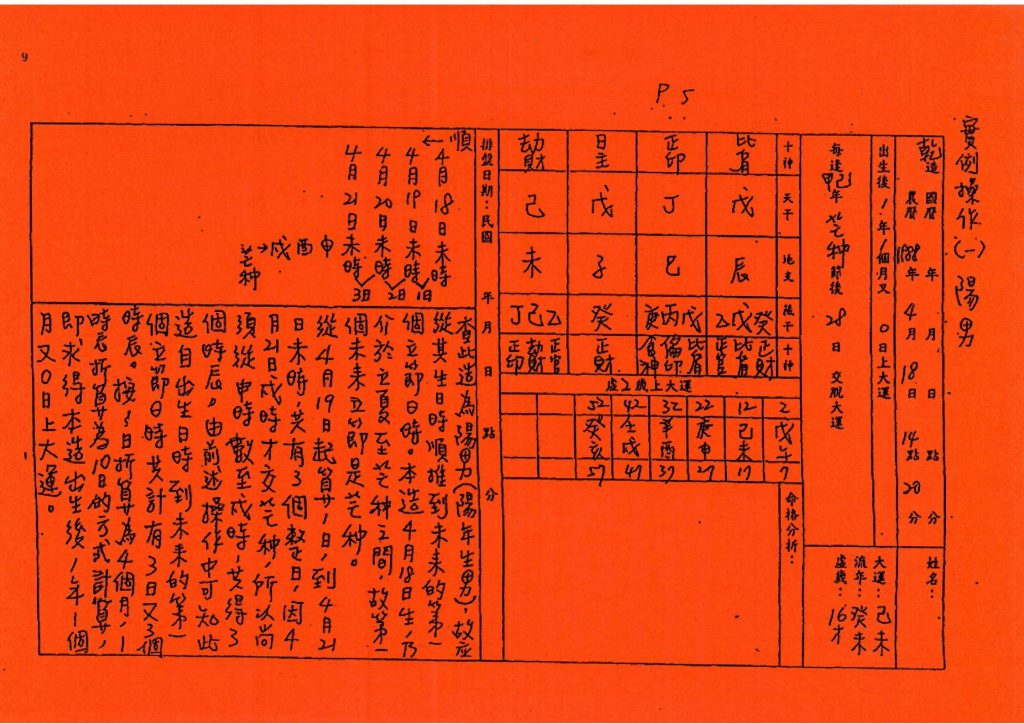 9
P 5
實例操作(一)陽男
乾造 國曆 年 月 日 點 分
農曆 1988年 4月 18日 14點 20分
姓名:
出生後1年1個月又0日上大運
每逢甲己年芒种節後28日交脫大運
大運:己未
流年:癸未
虛歲:16才
十神 天干 地支 藏干 十神
比肩 戊 辰 癸戊乙 正財 比肩 正官
正印 丁 巳 戊丙庚 比肩 偏印 食神
日主 戊 子 癸 正財
劫財 己 未 乙己丁 正官 劫財 正印
虛2歲上大運
2 戊午 7
12 己未 17
22 庚申 27
32 辛酉 37
42 壬戌 47
52 癸亥 57
命格分析:
排盤日期:民國 年 月 日 點 分
順
4月18日未時
4月19日未時
4月20日未時
4月21日未時
1日
2日
3日
申酉戌→芒种
查此造為陽男(陽年生男),故應
從其生日時順推到未來的第一
個立節日時。本造4月18日生,乃
介於立夏至芒种之間,故第一
個未來立節即是芒种。
從4月19日起算1日,到4月21
日未時,共有3個整日,因4
月21日戌時才交芒种,所以尚
須從申時數至戌時,共得3
個時辰。由前述操作中可知此
造自出生日時到未來的第一
個立節日時共計有3日又3個
時辰。按1日折算為4個月,1
時辰折算為10日的方式計算,
即求得本造出生後,1年1個
月又0日上大運。